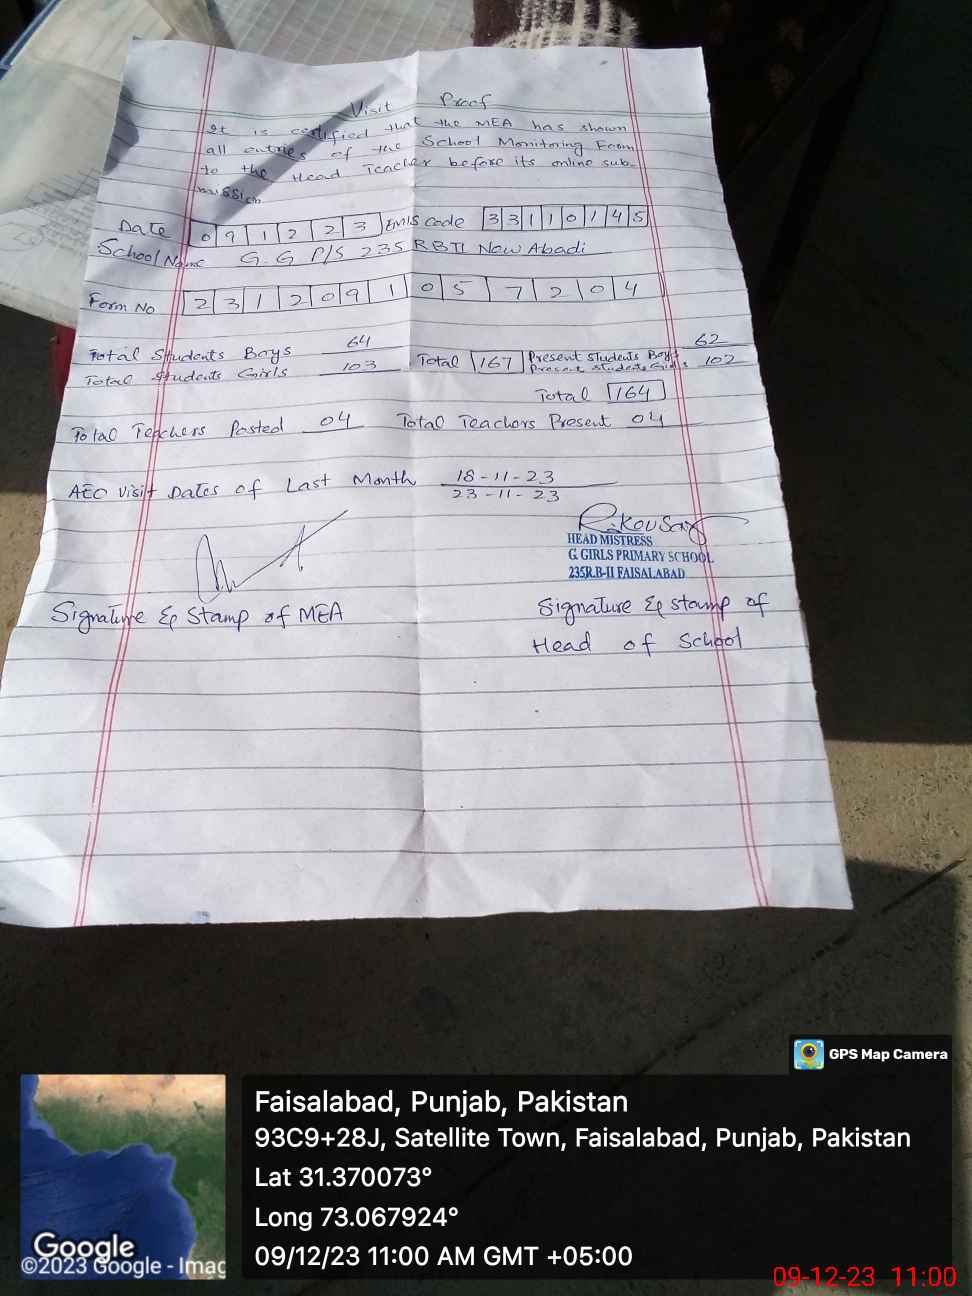 Visit Proof
It is certified that the MEA has shown
all entries of the School Monitoring Form
to the Head Teacher before its online sub-
mission.
Date 0 9 1 2 2 3 EMIS Code 3 3 1 1 0 1 4 5
School Name G.G P/S 235 RB II New Abadi
Form No 2 3 1 2 0 9 1 0 5 7 2 0 4
Total Students Boys 64 Total 167 Present Students Boys 62
Total Students Girls 103 Present Students Girls 102
Total 164
Total Teachers Posted 04 Total Teachers Present 04
AEO Visit Dates of Last Month 18-11-23
23-11-23
R.Kousar
HEAD MISTRESS
G. GIRLS PRIMARY SCHOOL
235R.B-II FAISALABAD
Signature & Stamp of MEA
Signature & Stamp of
Head of School
GPS Map Camera
Faisalabad, Punjab, Pakistan
93C9+28J, Satellite Town, Faisalabad, Punjab, Pakistan
Lat 31.370073°
Long 73.067924°
09/12/23 11:00 AM GMT +05:00
Google
©2023 Google - Imag
09-12-23 11:00